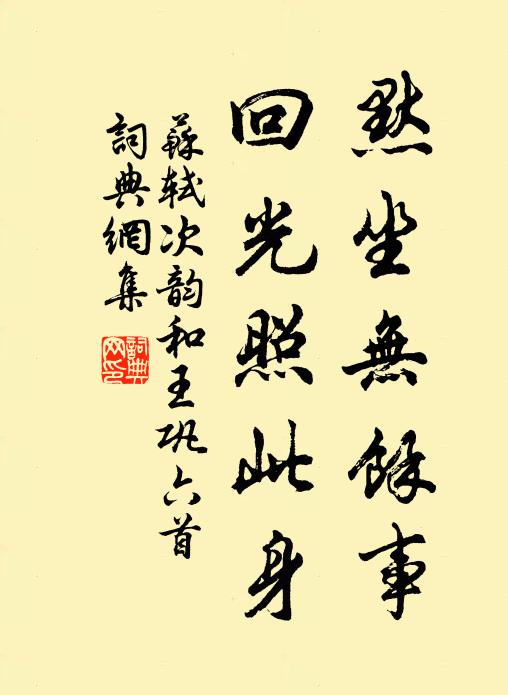 默坐無餘事
回光照此身
蘇軾次韵和王巩六首
詞典網集
詞典網印